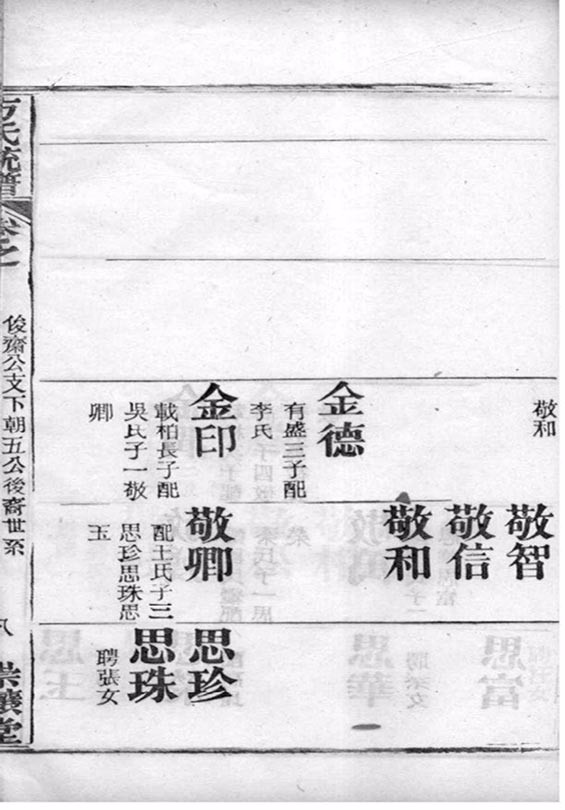 敬和
金德
有盛三子配
李氏
金印
載柏長子配
吳氏子一敬
卿
敬智
敬信
敬和
敬卿
配王氏子三
思珍思珠思
玉
思珍
思珠
聘張女
方氏統譜
卷之
俊齋公支下朝五公後裔世系
八